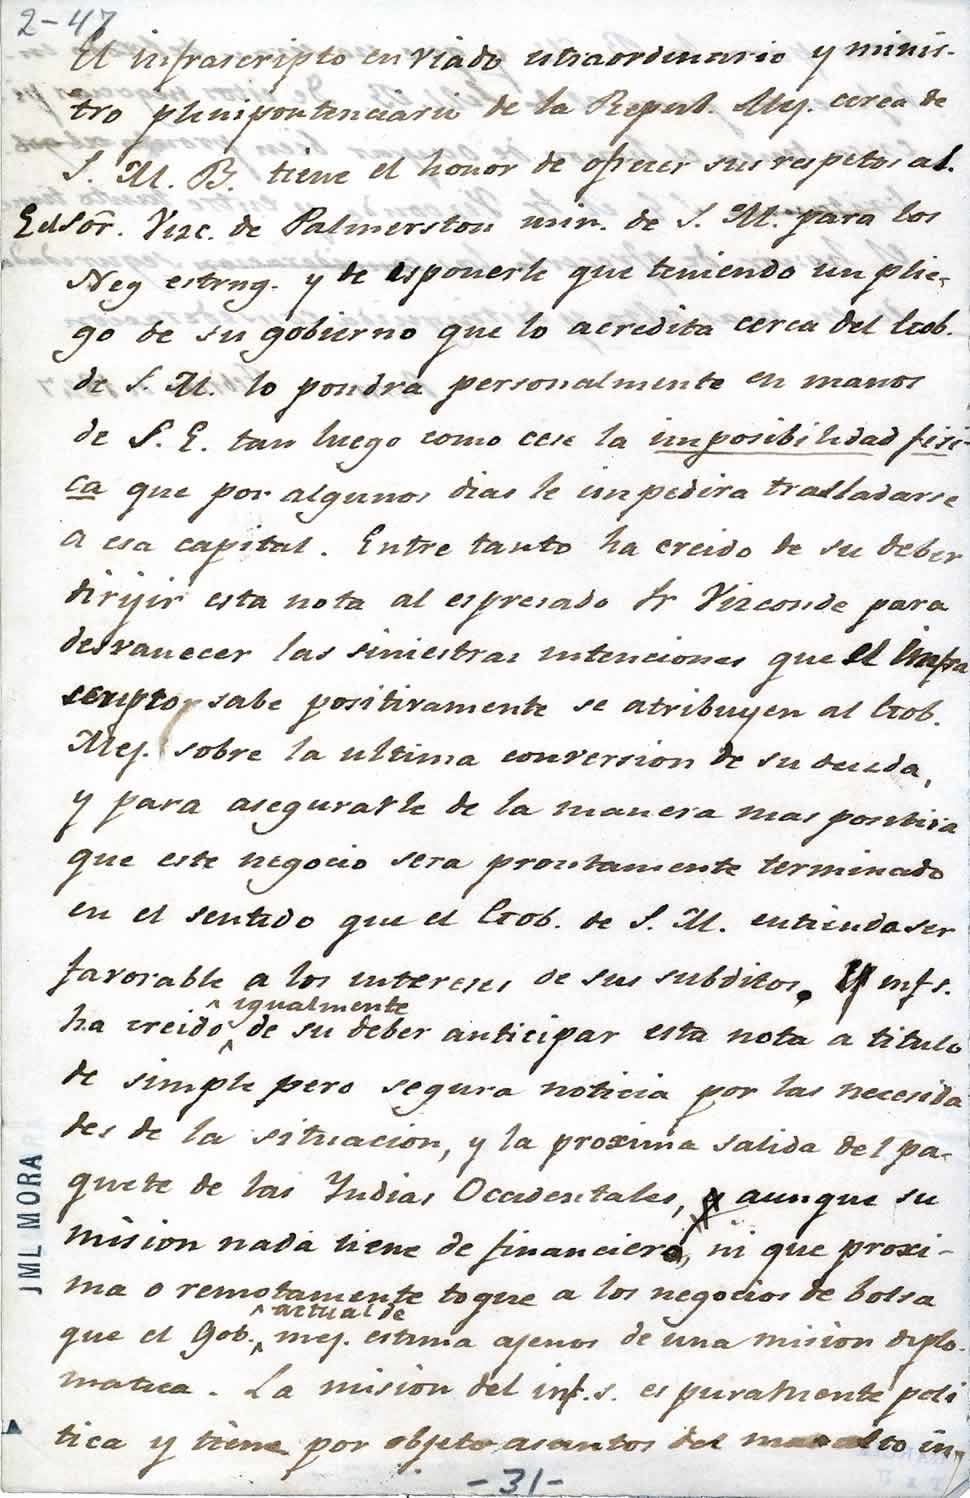 2-47
El infrascripto enviado estraordinario y minis-
tro plenipontenciario de la Repub. Mej. cerca de
S. M. B. tiene el honor de ofrecer sus respetos al
E.d Sōr. Vizc. de Palmerston min. de S. M. para los
Neg estrng. y de esponerle que teniendo un plie-
go de su gobierno que lo acredita cerca del Gob.
de S. M. lo pondra personalmente en manos
de S. E. tan luego como cese la imposibilidad fisi-
ca que por algunos dias le impedira trasladarse
a esa capital. Entre tanto ha creido de su deber
dirijir esta nota al espresado Sr Vizconde para
desvanecer las siniestras intenciones que el infra
scripto sabe positivamente se atribuyen al Gob.
Mej. sobre la ultima conversion de su deuda,
y para asegurarle de la manera mas positiva
que este negocio sera prontamente terminado
en el sentido que el Gob. de S. M. entienda ser
favorable a los intereses de sus subditos. El infs.
igualmente
ha creido de su deber anticipar esta nota a titulo
de simple pero segura noticia por las necesida
des de la situacion, y la proxima salida del pa-
quete de las Indias Occidentales, y aunque su
mision nada tiene de financiero, ni que proxi-
ma o remotamente toque a los negocios de bolsa
actual de
que el Gob. mej. estima ajenos de una mision diplo-
matica. La mision del inf.s. es puramente poli
tica y tiene por objeto asuntos del mas alto in-
JML MORA
-31-